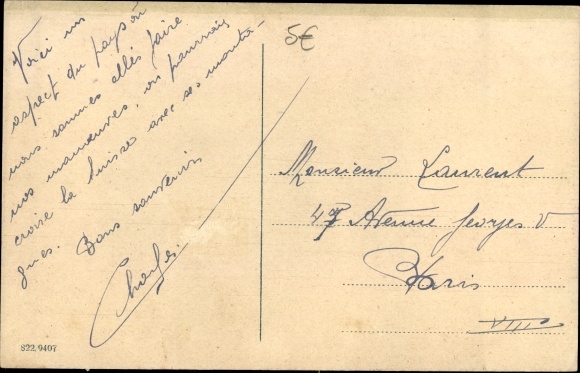 Voici un
aspect du pays où
nous sommes allés faire
nos manœuvres, on pourrait
croire la Suisse avec ses monta-
gnes. Bons souvenirs
Charles.
5€
Monsieur Laurent
47 Avenue Georges V
Paris
VIII
S22,9407